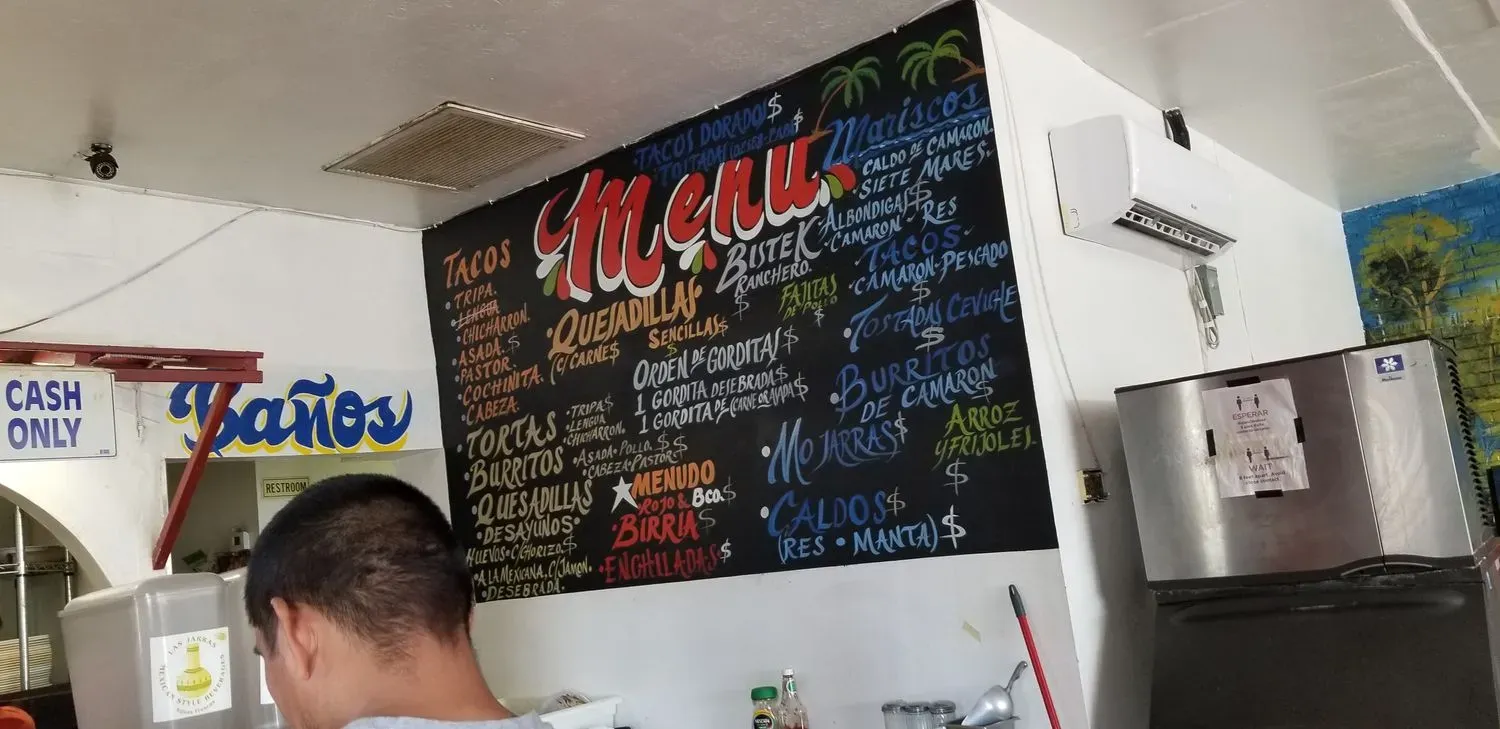 CASH
ONLY
Baños
RESTROOM
TACOS DORADOS $
TOITADAS (DESEB-CADA) $
Menu
TACOS
• TRIPA.
• LENGUA
• CHICHARRON.
• ASADA. $
• PASTOR.
• COCHINITA.
• CABEZA.
• QUESADILLAS
(C/ CARNE $
SENCILLAS $
BISTEK
RANCHERO.
$
FAJITAS
DE POLLO
$
ORDEN DE GORDITAS $
1 GORDITA DESEBRADA $
1 GORDITA DE (CARNE OR AVADA $
• TORTAS
• BURRITOS
• QUESADILLAS
• TRIPA $
• LENGUA.
• CHICHARRON.
• ASADA • POLLO. $
• CABEZA • PASTOR $
• DESAYUNOS •
HUEVOS • C/CHORIZO. $
• A LA MEXICANA, C/JAMON.
• DESEBRADA.
MENUDO
ROJO & Bco. $
• BIRRIA $
• ENCHILADAS $
Mariscos
CALDO DE CAMARON.
SIETE MARES.
ALBONDIGAS $
CAMARON • RES
• TACOS •
CAMARON • PESCADO
$
• TOSTADAS CEVICHE
$
• BURRITOS
DE CAMARON
$
• MOJARRAS $
ARROZ
Y FRIJOLES.
$
• CALDOS $
(RES • MANTA) $
ESPERAR
WAIT
6 feet Apart. Avoid
close contact.
LAS JARRAS
MEXICAN STYLE BEVERAGES